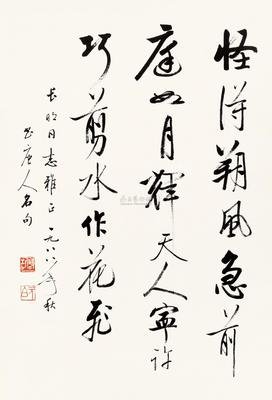 怪得朔風急前
庭如月輝天人寧許
巧剪水作花飛
长明同志雅正一九八八年秋
書唐人名句